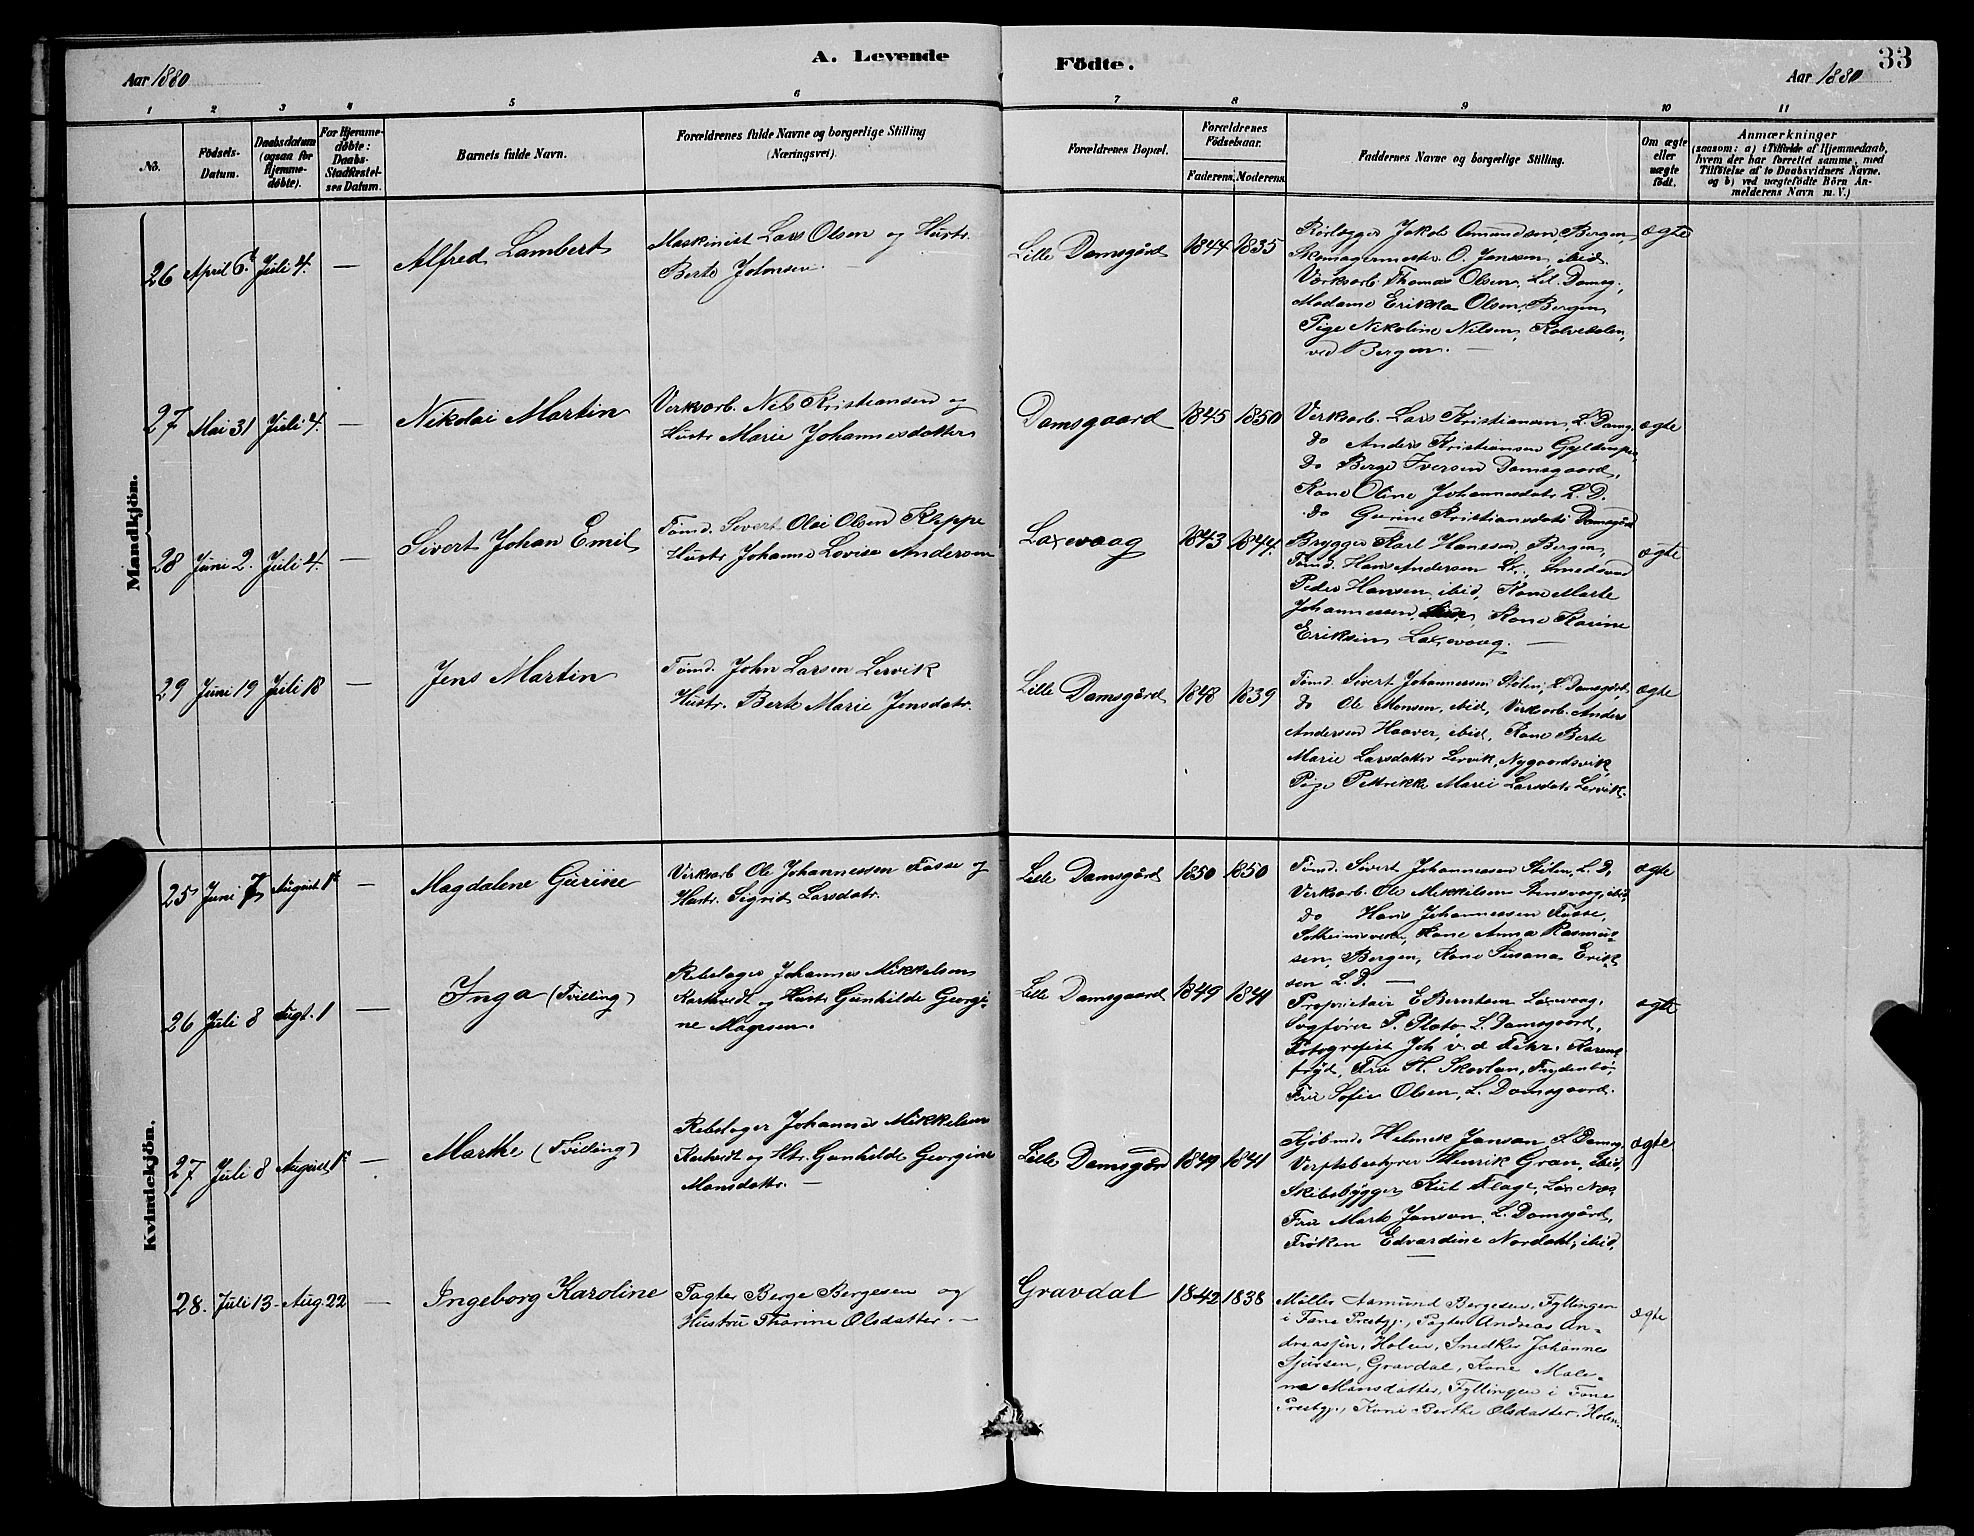 A. Levende Födte.
33
Aar 1880
Aar 1880
1 2 3 4 5 6 7 8 9 10 11
No.
Födsels-Datum.
Daabsdatum (ogsaa for Hjemme-döbte).
For Hjemme-döbte: Daabs-Stadfæstelses Datum.
Barnets fulde Navn.
Forældrenes fulde Navne og borgerlige Stilling (Næringsvei).
Forældrenes Bopæl.
Forældrenes Födselsaar.
Faderens. Moderens.
Faddernes Navne og borgerlige Stilling.
Om ægte eller uægte födt.
Anmærkninger
(saasom: a) i Tilfælde af Hjemmedaab, hvem der har forrettet samme, med Tilföielse af to Daabsvidners Navne, og b) ved uægtefödte Börn Anmelderens Navn m. V.)
Mandkjön.
26 April 6. Juli 4. — Alfred Lambert
Maskinist Lars Olsen og Hustr.
Berte Johnsen. —
Lille Damsgård 1844 1835
Rörlegger Jakob Amundsen, Bergen,
Skomagermester O. Jansen, ibid.
Verksarb. Thomas Olsen, Lil. Damsg.,
Madame Erikka Olsen, Bergen,
Pige Nikoline Nilsen,
ved Bergen. —
ægte
27 Mai 31 Juli 4. — Nikolai Martin
Verksarb. Nils Kristiansen og
Hustr. Marie Johannesdatter
Damsgaard 1845 1850
Verksarb. Lars Kristiansen, L. Damsg.
do Anders Kristiansen
do Berge Iversen Damsgaard,
Kone Oline Johannesdatr. L. D.
do Gurine Kristiansdatr. Damsgård
ægte
28 Juni 2. Juli 4. — Sivert Johan Emil
Tømd. Sivert Olai Olsen Kleppe
Hustr. Johanne Lovise Andersen
Laxevaag 1843 1844.
Brygger Karl Hanssen, Bergen,
Tømd. Hans Andersen
Peder Hansen, ibid, Kone Marte
Johannessen, Kone Karine
Eriksen Laxevaag. —
ægte
29 Juni 19 Juli 18 — Jens Martin
Tømd. John Larsen Lervik
Hustr. Berte Marie Jensdatr.
Lille Damsgård 1848 1839
Tømd. Sivert Johannessen Stölen, L. Damsgård,
do Ole Monsen, ibid, Verksarb. Anders
Andersen Haaver, ibid, Kone Berte
Marie Larsdatter Lervik, Nygaardsvik,
Pige Pettrikke Marie Larsdatr. Lervik.
ægte
Kvindekjön.
25 Juni 7 August 1 — Magdalene Gurine
Verksarb Ole Johannessen Fosse og
Hustr. Sigrid Larsdatr.
Lille Damsgård 1850 1850
Tømd. Sivert Johannessen Stölen, L. D,
Verksarb. Ole Mikkelsen ibid,
do Hans Johannessen Fosse,
Solheimsviken, Kone Anna Rasmus-
sen, Bergen, Kone Susana Erik-
sen L. D. —
ægte
26 Juli 8 Augt. 1 — Inga (Tvilling)
Rebslager Johannes Mikkelsen
Karlsvedt og Hustr Gunhilde Georgi-
ne
Lille Damsgaard 1849 1841
Proprietair E Berntsen Laxevaag,
Sagfører P. Plato L. Damsgaard,
Fotografist Joh v. d Fehr,
Fru H. Skavlan, Frydenbö,
Fru Sofie Olsen, L. Damsgaard.
ægte
27 Juli 8 August 1 — Marthe (Tvilling)
Rebslager Johannes Mikkelsen
Karlsvedt og Htr. Gunhilde Georgine
Monsdattr. —
Lille Damsgård 1849 1841
Kjøbmd. Helmik Janson L Damsg.
Verftsbestyrer Henrik Gran, ibid,
Skibsbygger Knut Flage, Lax Næs,
Fru Marte Janson, L. Damsgård,
Frøken Edvardine Nordahl, ibid,
ægte
28. Juli 13. Aug. 22 — Ingeborg Karoline
Pagter Berge Bergesen og
Hustru Thorine Olsdatter. —
Gravdal 1842 1838
Møller Aamund Bergesen, Fyllingen
i Fane Prestgj., Pagter Andreas An-
dreassen, Holen, Snedker Johannes
Sjursen, Gravdal, Kone Male-
ne Monsdatter, Fyllingen i Fane
Prestgj., Kone Berthe Olsdatter. Holen.
ægte